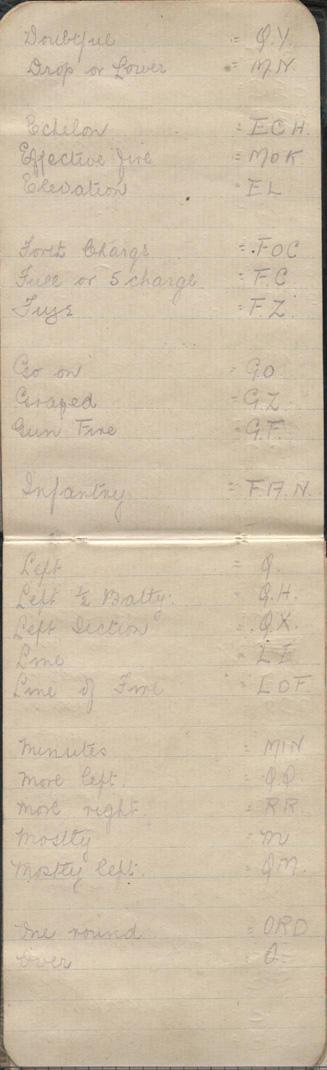 Doubtful = Q.Y.
Drop or Lower = M.N.
Echelon = ECH.
Effective fire = MOK
Elevation = EL
Fourth Charge = FOC
Full or 5 charge = F.C
Fuze = F.Z.
Go on = GO
Grazed = G.Z.
Gun Fire = G.F.
Infantry = F.A.N.
Left = Q.
Left ½ Batty. = Q.H.
Left Section = Q.X.
Line = LI
Line of Fire = LOF.
Minutes = MIN
More left. = Q.Q.
More right. = RR.
Mostly = M
Mostly left. = QM.
One round = ORD
Over = O